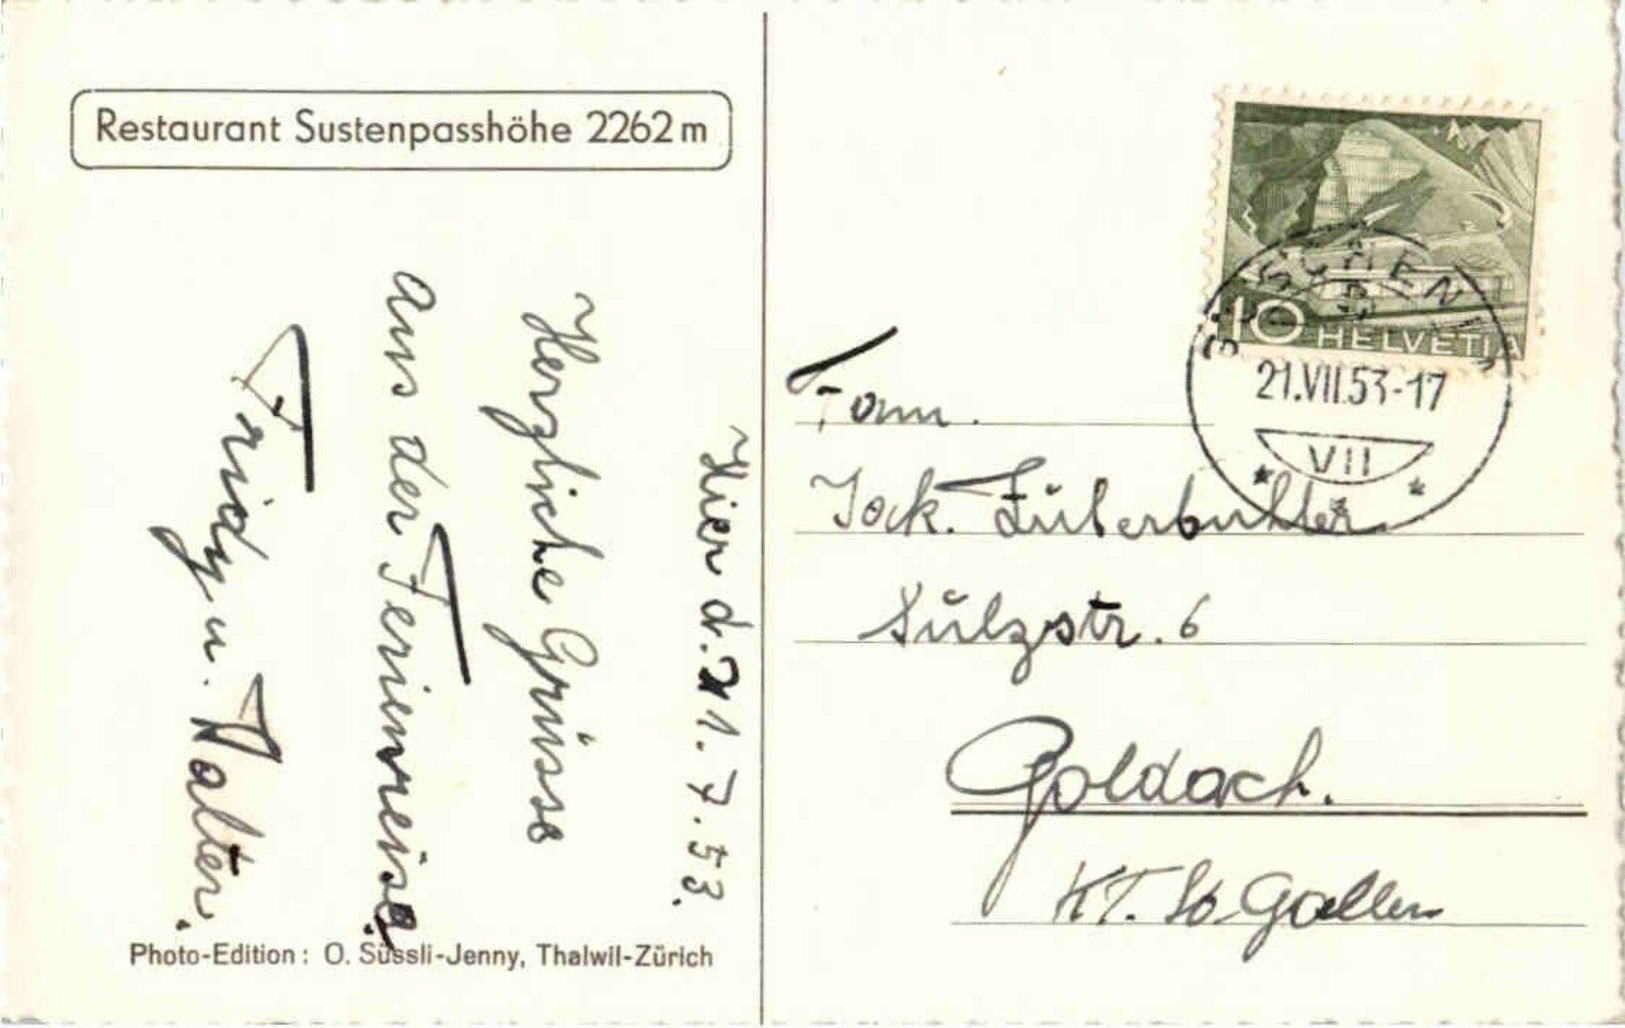 Restaurant Sustenpasshöhe 2262 m
Hier d. 21. 7. 53.
Herzliche Grüsse
aus der Ferienreise
Fridy u. Walter.
Photo-Edition: O. Süssli-Jenny, Thalwil-Zürich
10 HELVETIA
21.VII.53-17
VII
Fam.
Jack. Züberbuhler
Sulzstr. 6
Goldach.
KT. St. Gallen